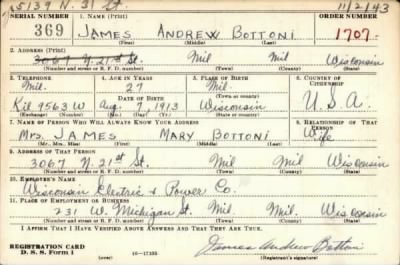 5139 N. 31 St. 11/2/43
SERIAL NUMBER 1. NAME (Print) ORDER NUMBER
369 JAMES ANDREW BOTTONI 1707
(First) (Middle) (Last)
2. ADDRESS (Print)
3067 N. 21st St. Mil Mil Wisconsin
(Number and street or R. F. D. number) (Town) (County) (State)
3. TELEPHONE 4. AGE IN YEARS 5. PLACE OF BIRTH 6. COUNTRY OF CITIZENSHIP
Mil. 27 Mil.
DATE OF BIRTH (Town or county)
Kil 9563 W Aug. 7, 1913 Wisconsin U.S.A.
(Exchange) (Number) (Mo.) (Day) (Yr.) (State or country)
7. NAME OF PERSON WHO WILL ALWAYS KNOW YOUR ADDRESS 8. RELATIONSHIP OF THAT PERSON
Mrs. JAMES MARY BOTTONI Wife
(Mr., Mrs., Miss) (First) (Middle) (Last)
9. ADDRESS OF THAT PERSON
3067 N. 21st St. Mil Mil Wisconsin
(Number and street or R. F. D. number) (Town) (County) (State)
10. EMPLOYER'S NAME
Wisconsin Electric & Power Co.
11. PLACE OF EMPLOYMENT OR BUSINESS
231 W. Michigan St. Mil Mil Wisconsin
(Number and street or R. F. D. number) (Town) (County) (State)
I AFFIRM THAT I HAVE VERIFIED ABOVE ANSWERS AND THAT THEY ARE TRUE.
REGISTRATION CARD
D. S. S. Form 1 16—17105 James Andrew Bottoni
(over) (Registrant's signature)